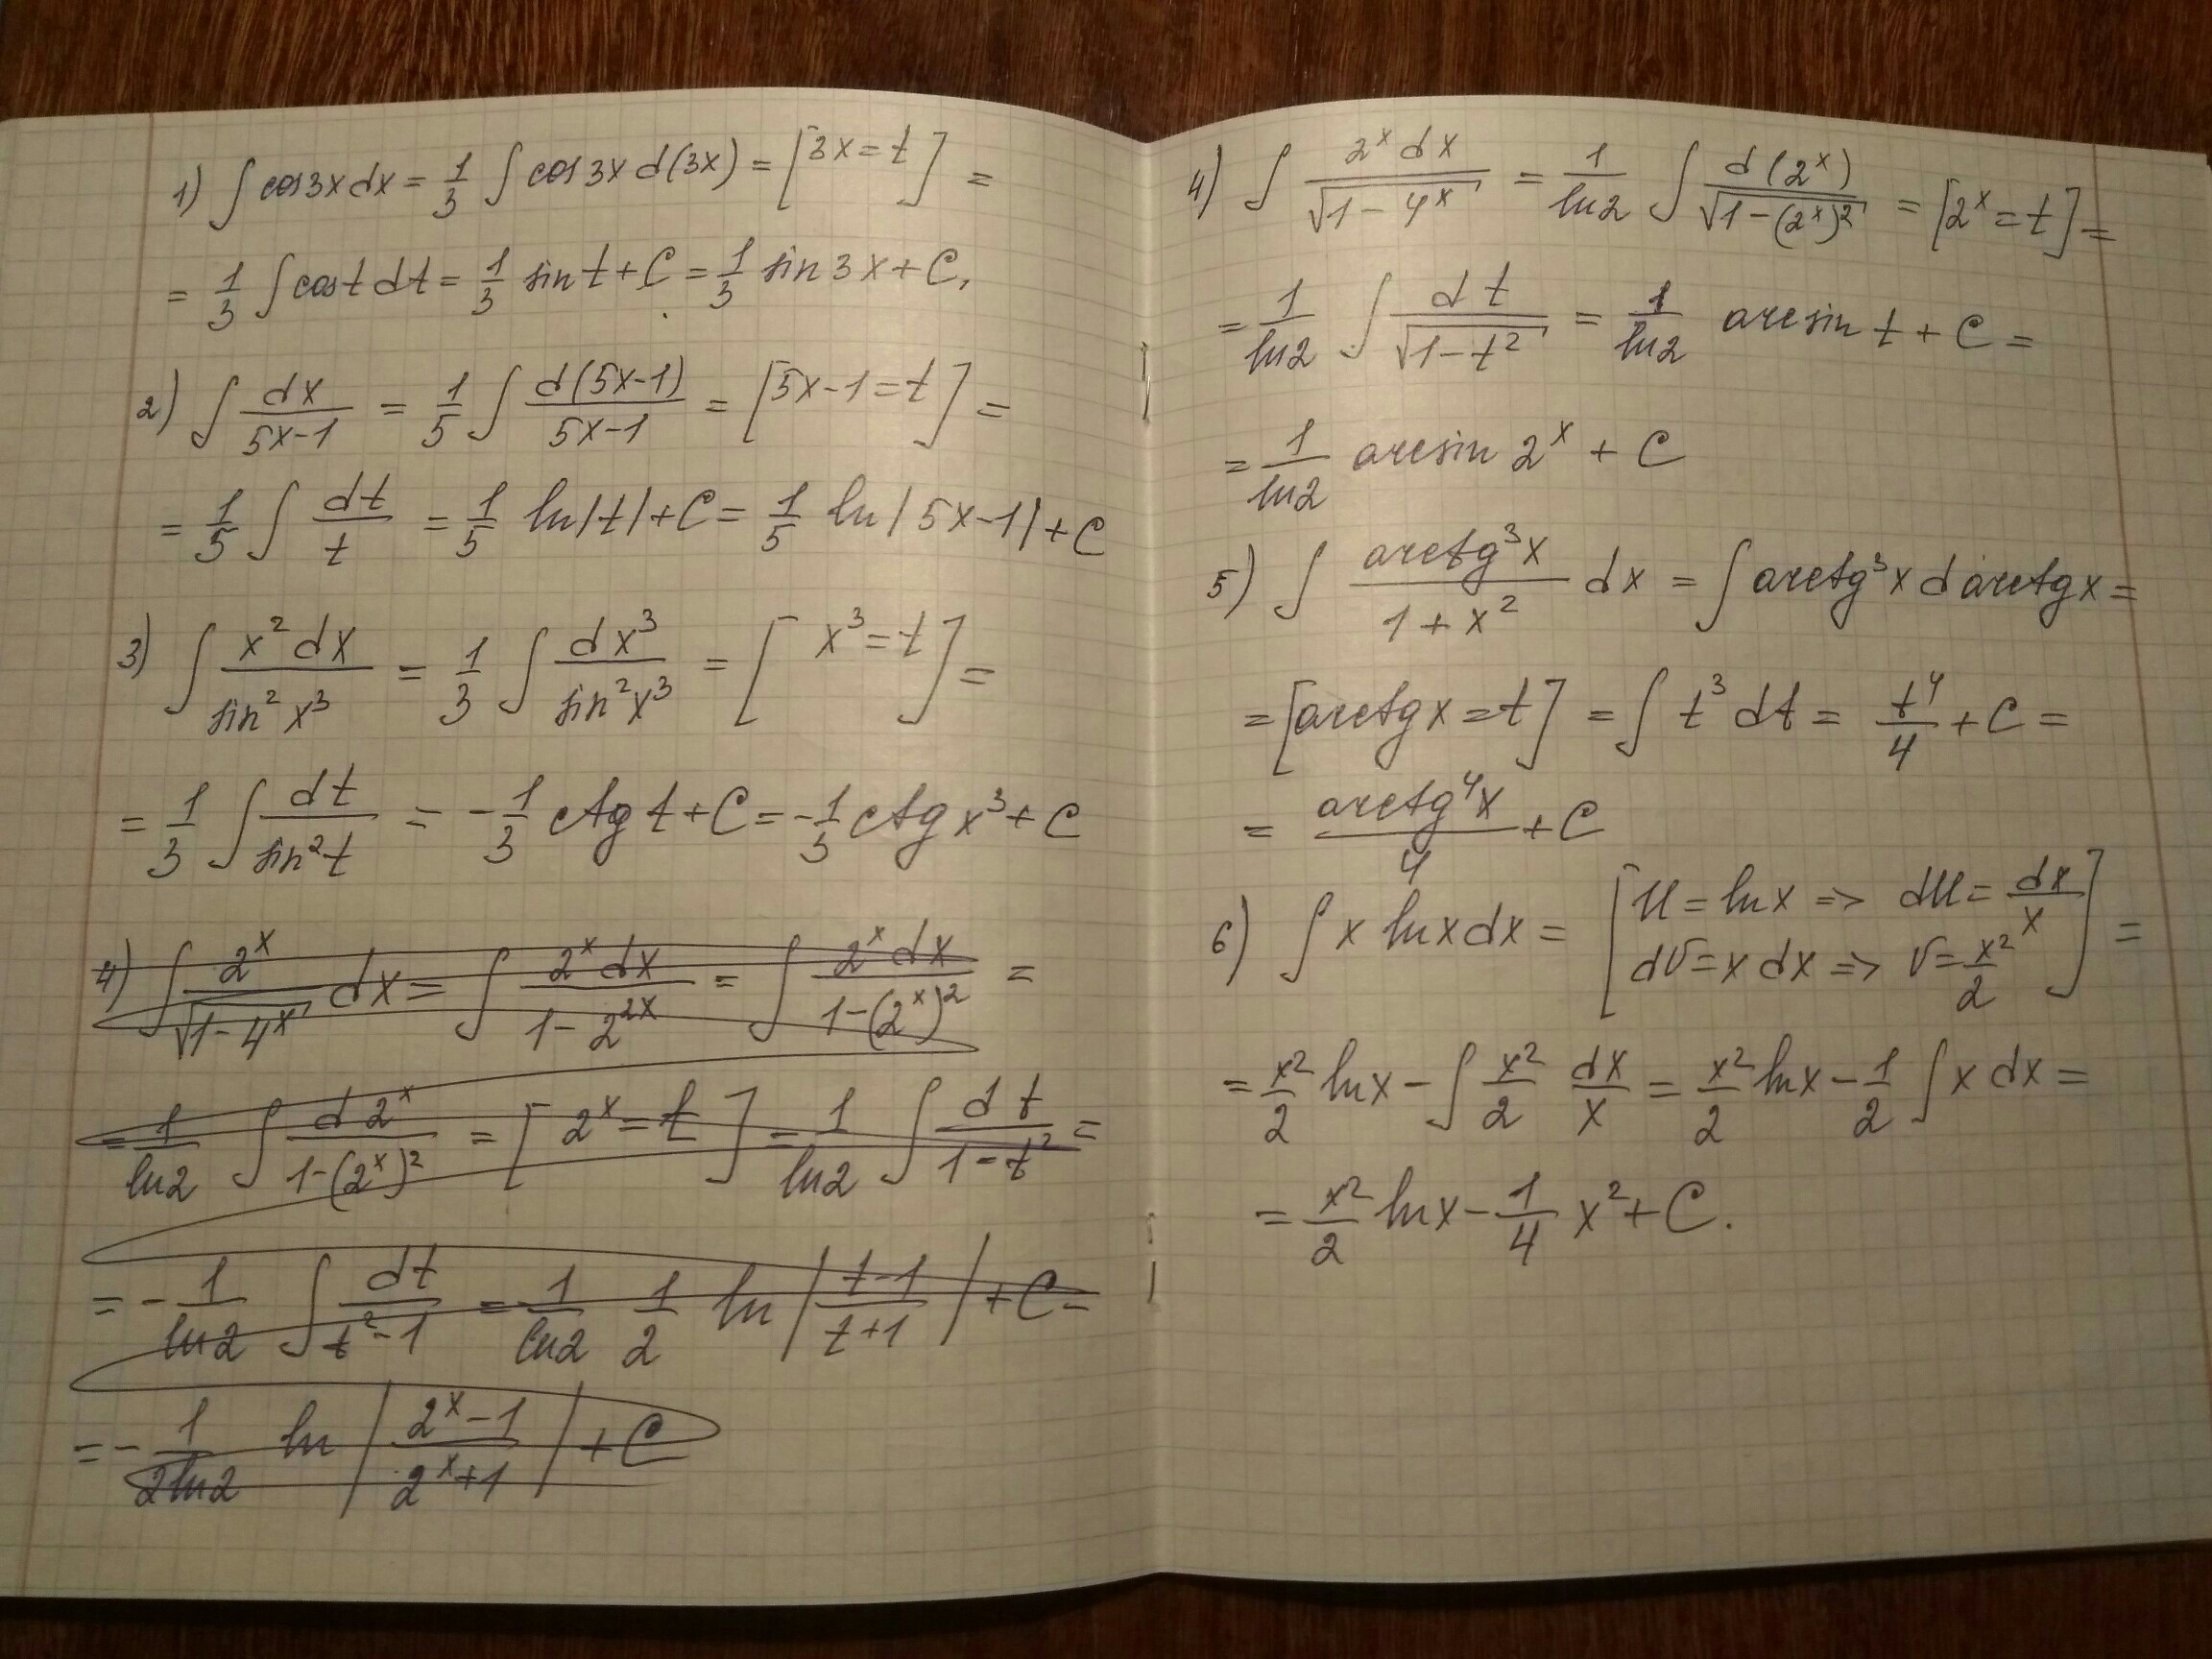 1) ∫ cos3x dx = 1/3 ∫ cos 3x d(3x) = [3x = t] =
= 1/3 ∫ cos t dt = 1/3 sin t + C = 1/3 sin 3x + C,
2) ∫ dx/(5x-1) = 1/5 ∫ d(5x-1)/(5x-1) = [5x-1 = t] =
= 1/5 ∫ dt/t = 1/5 ln|t| + C = 1/5 ln|5x-1| + C
3) ∫ x² dx/sin² x³ = 1/3 ∫ dx³/sin² x³ = [x³ = t] =
= 1/3 ∫ dt/sin² t = -1/3 ctg t + C = -1/3 ctg x³ + C
4) ∫ 2^x/√(1-4^x) dx = ∫ 2^x dx/(1-2^(2x)) = ∫ 2^x dx/(1-(2^x)²) =
= 1/ln2 ∫ d 2^x/(1-(2^x)²) = [2^x = t] = 1/ln2 ∫ dt/(1-t²) =
= -1/ln2 ∫ dt/(t²-1) = -1/ln2 1/2 ln|(t-1)/(t+1)| + C =
= -1/(2ln2) ln|(2^x-1)/(2^x+1)| + C
4) ∫ 2^x dx/√(1-4^x) = 1/ln2 ∫ d(2^x)/√(1-(2^x)²) = [2^x = t] =
= 1/ln2 ∫ dt/√(1-t²) = 1/ln2 arcsin t + C =
= 1/ln2 arcsin 2^x + C
5) ∫ arctg³x/(1+x²) dx = ∫ arctg³x d arctg x =
= [arctg x = t] = ∫ t³ dt = t⁴/4 + C =
= arctg⁴x/4 + C
6) ∫ x ln x dx = [u = ln x => du = dx/x
dv = x dx => v = x²/2] =
= x²/2 ln x - ∫ x²/2 dx/x = x²/2 ln x - 1/2 ∫ x dx =
= x²/2 ln x - 1/4 x² + C.